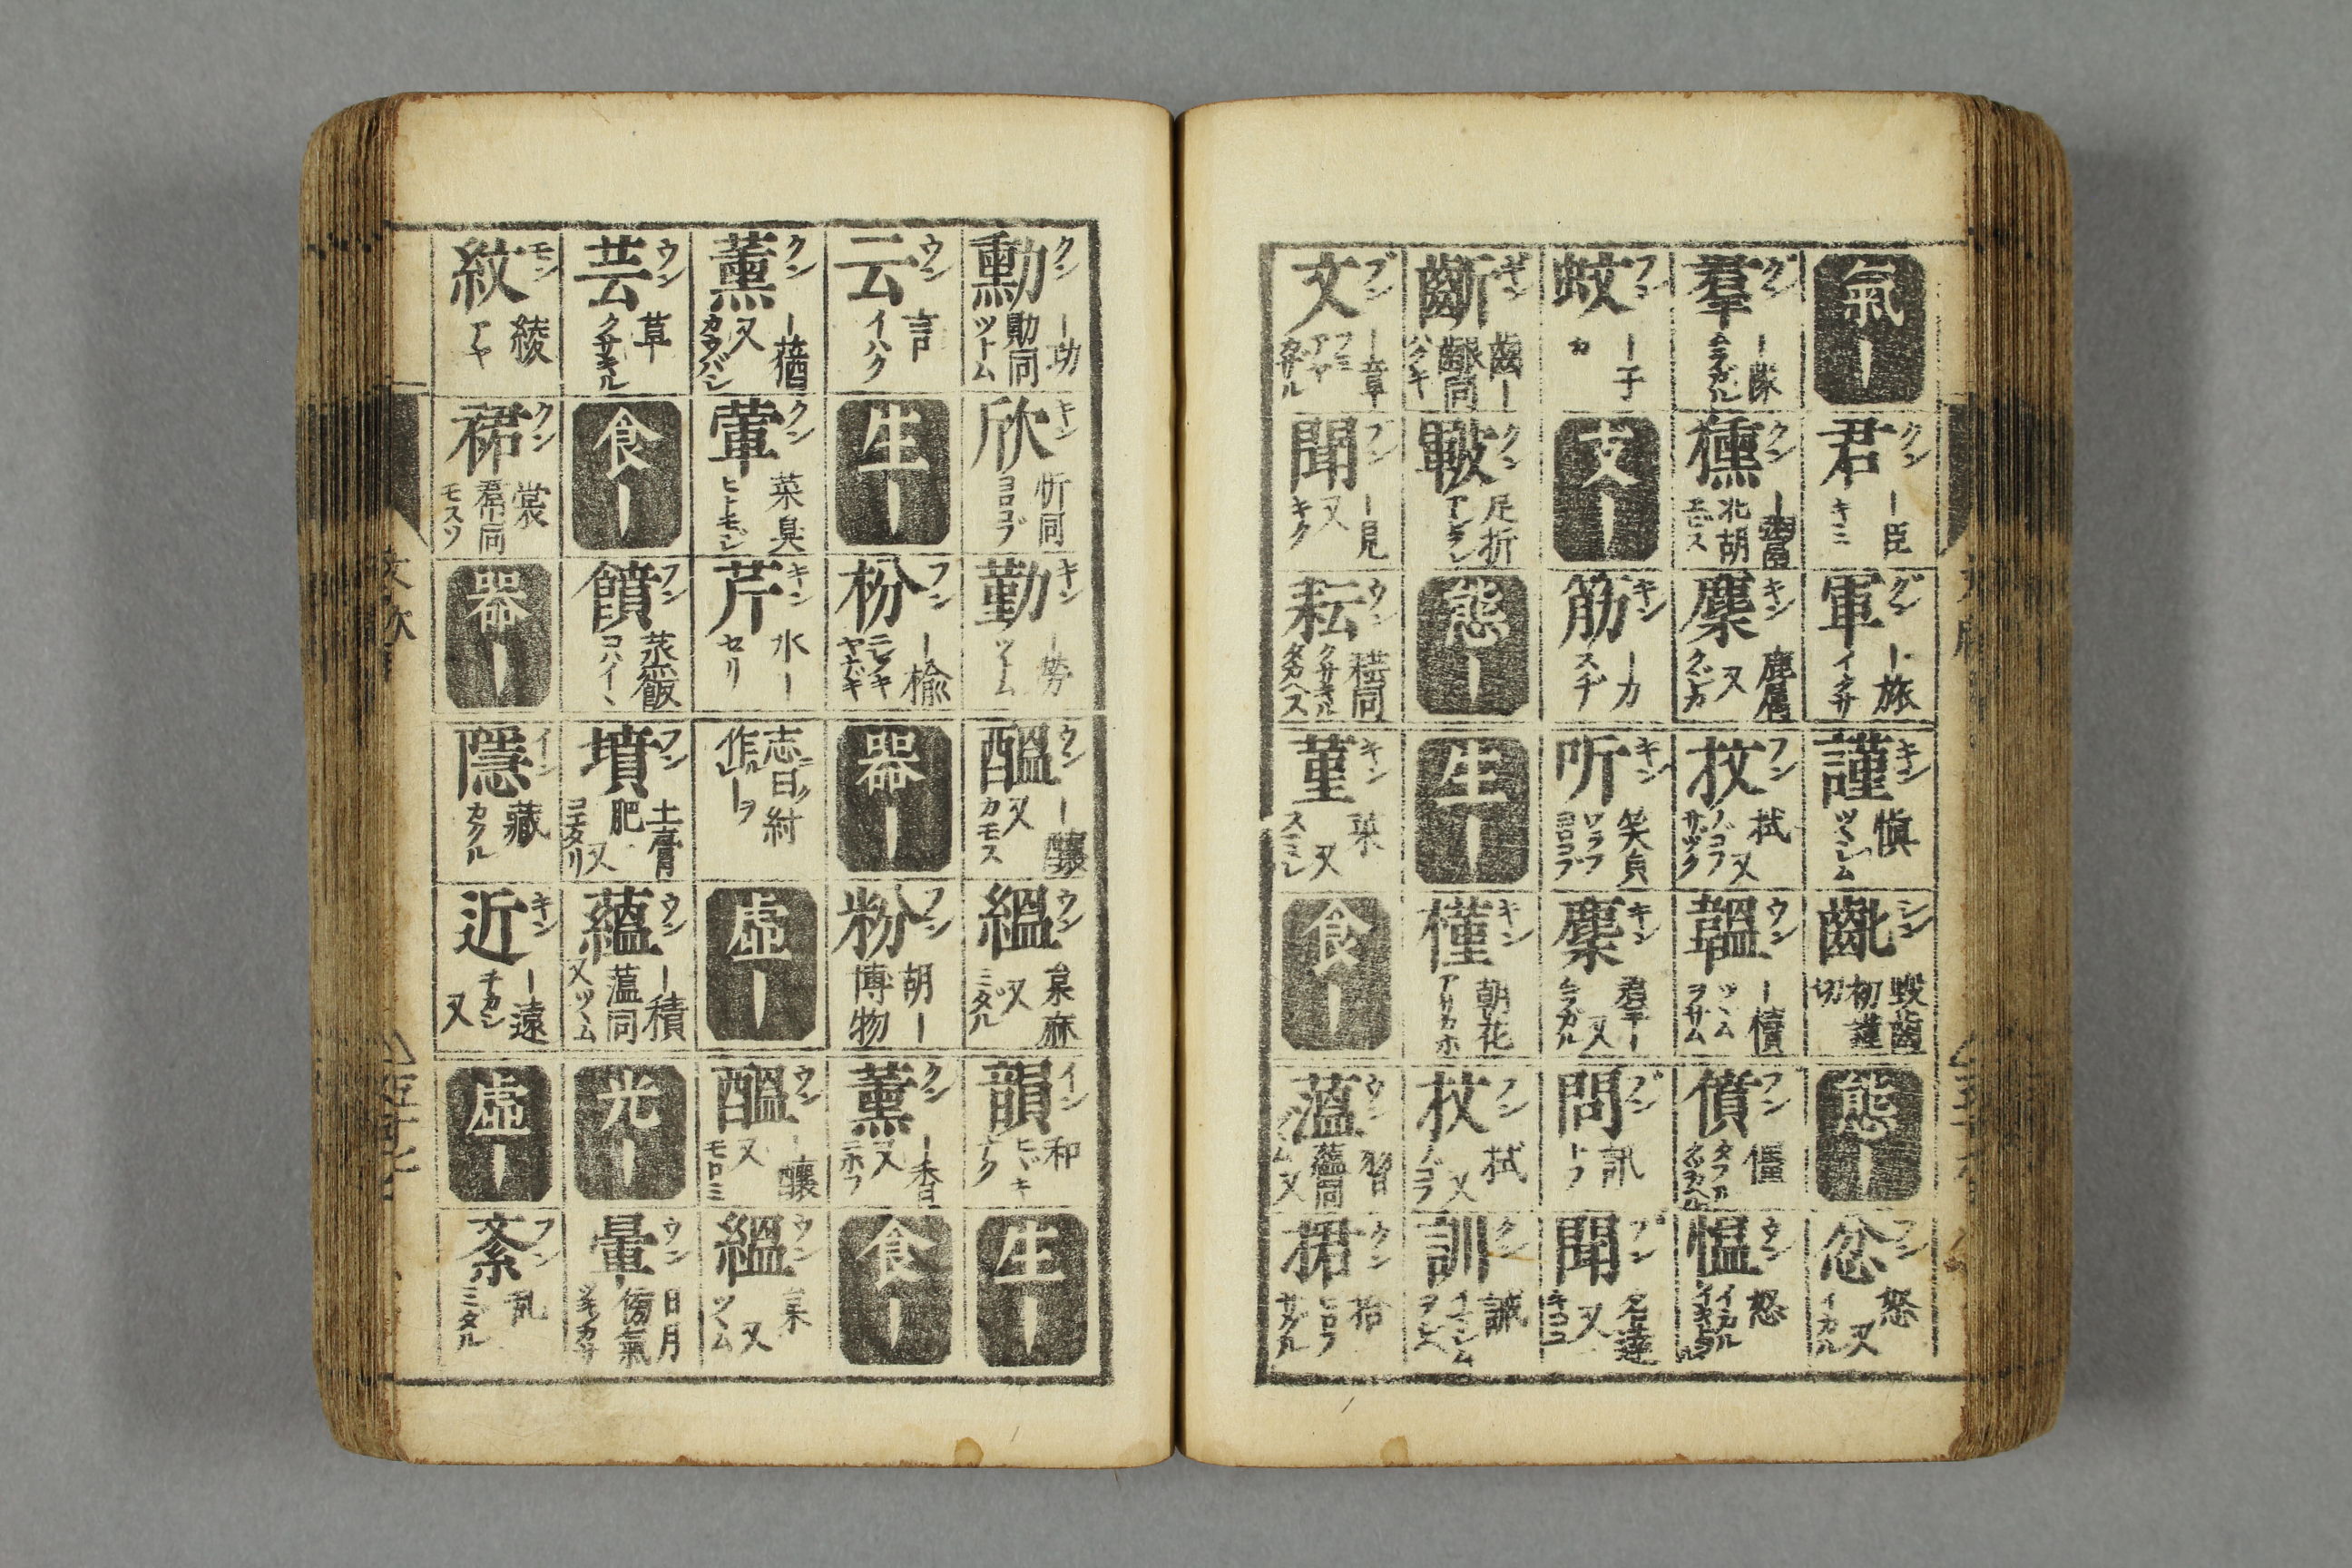 氣ー
君 クン ー臣 キミ
軍 グン ー旅 イクサ
謹 キン 愼 ツヽシム
齔 シン 毀齒 初謹切
態ー
忿 フン 怒 又 イカル
羣 グン ー隊 ムラガル
獯 クン ー鬻 北胡 ヱビス
麇 キン 鹿屬 又 クジカ
抆 フン 拭 又 ノゴフ
韞 ウン ー櫝 ツヽム ヲサム
僨 フン 僵 タフル
愠 ウン 怒 イカル
蚊 フン ー子 カ
支ー
筋 キン ー力 スヂ
听 キン 笑皃 ワラフ ヨロコブ
麇 キン 羣ー 又 ムラガル
問 ブン 訊 トフ
聞 ブン 名達 又 キコユ
齗 ギン 齒ー 齦同 ハグキ
皸 クン 足折
態ー
生ー
槿 キン 朝花 アサカホ
抆 フン 拭 又 ノゴフ
訓 クン 誡
文 ブン ー章 フミ アヤ カザル
聞 ブン ー見 又 キク
耘 ウン 秐同 クサキル タカヘス
菫 キン 菜 又 スミレ
食ー
薀 ウン 習 蘊同 又
捃 クン 拾 ヒロフ
勳 クン ー功 勛同 ツトム
欣 キン 忻同 ヨロコブ
勤 キン ー勞 ツトム
醞 ウン ー釀 又 カモス
縕 ウン 枲麻 又 ミダル
韻 イン 和 ヒヾキ
生ー
云 ウン 言 イハク
生ー
枌 フン ー楡 ニレノキ
器ー
粉 フン 胡ー 博物
薫 クン ー香 又 ニホフ
食ー
薰 クン ー蕕 又 カウバシ
葷 クン 菜臭 ヒトモジ
芹 キン 水ー セリ
志曰紂作ルーヲ
虚ー
醞 ウン ー釀 又 モロミ
縕 ウン 枲 又 ツヽム
芸 ウン 草 クサキル
食ー
饙 フン 蒸飯 コハイヽ
墳 フン 土膏肥 又 コエタリ
蘊 ウン ー積 薀同 又ツヽム
光ー
暈 ウン 日月傍氣 ツキノカサ
紋 モン 綾 アヤ
裙 クン 裳 帬同 モスソ
器ー
隱 イン 藏 カクル
近 キン ー遠 チカシ 又
虚ー
紊 フン 乱 ミタル